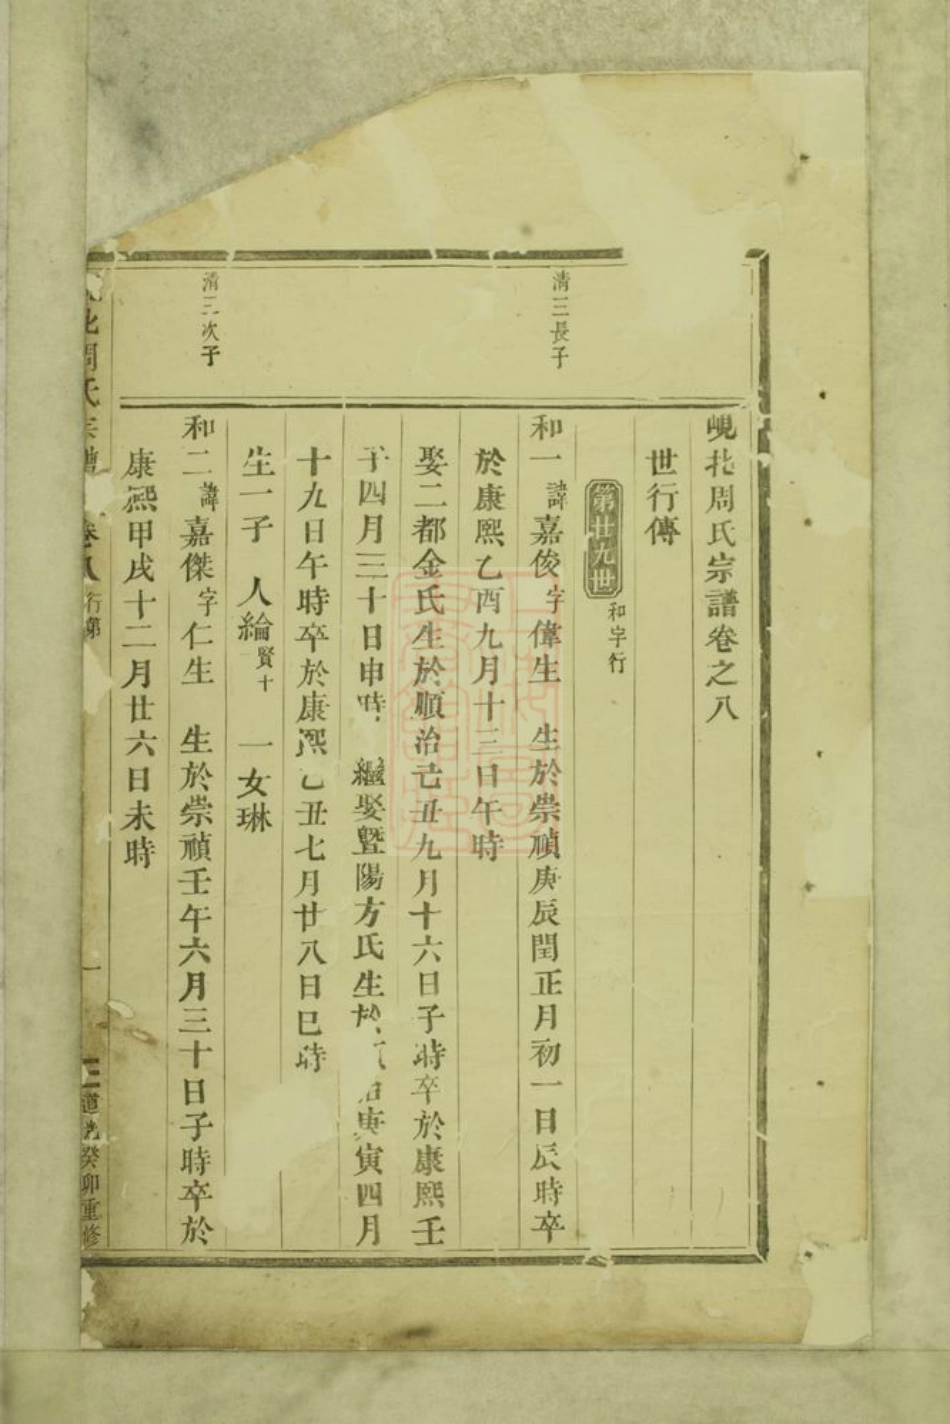 峴北周氏宗譜卷之八
世行傳
第廿九世 和字行
清三長子
和一 諱嘉俊 字偉生 生於崇禎庚辰閏正月初一日辰時卒
於康熙乙酉九月十三日午時
娶二都金氏生於順治己丑九月十六日子時卒於康熙壬
子四月三十日申時 繼娶暨陽方氏生於 治庚寅四月
十九日午時卒於康熙乙丑七月廿八日巳時
生一子 人綸 賢十 一女琳
清三次子
和二 諱嘉傑 字仁生 生於崇禎壬午六月三十日子時卒於
康熙甲戌十二月廿六日未時
北周氏宗譜 卷八 行第 一 道光癸卯重修